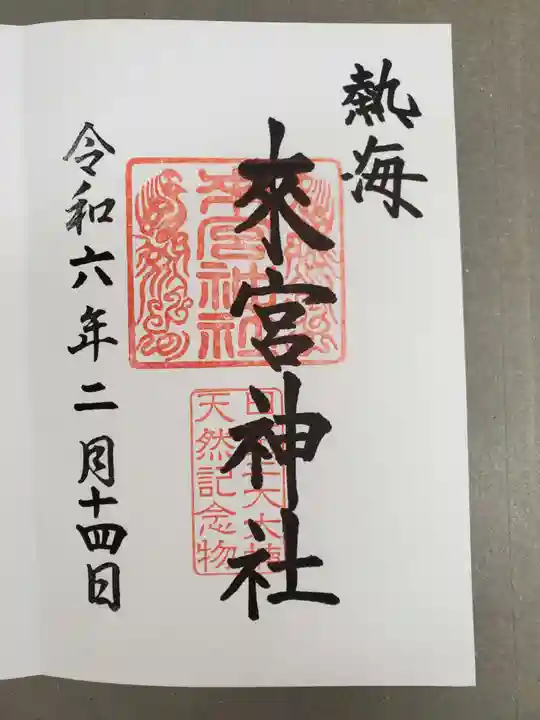 熱海
來宮神社
來宮神社
天然記念物
令和六年二月十四日